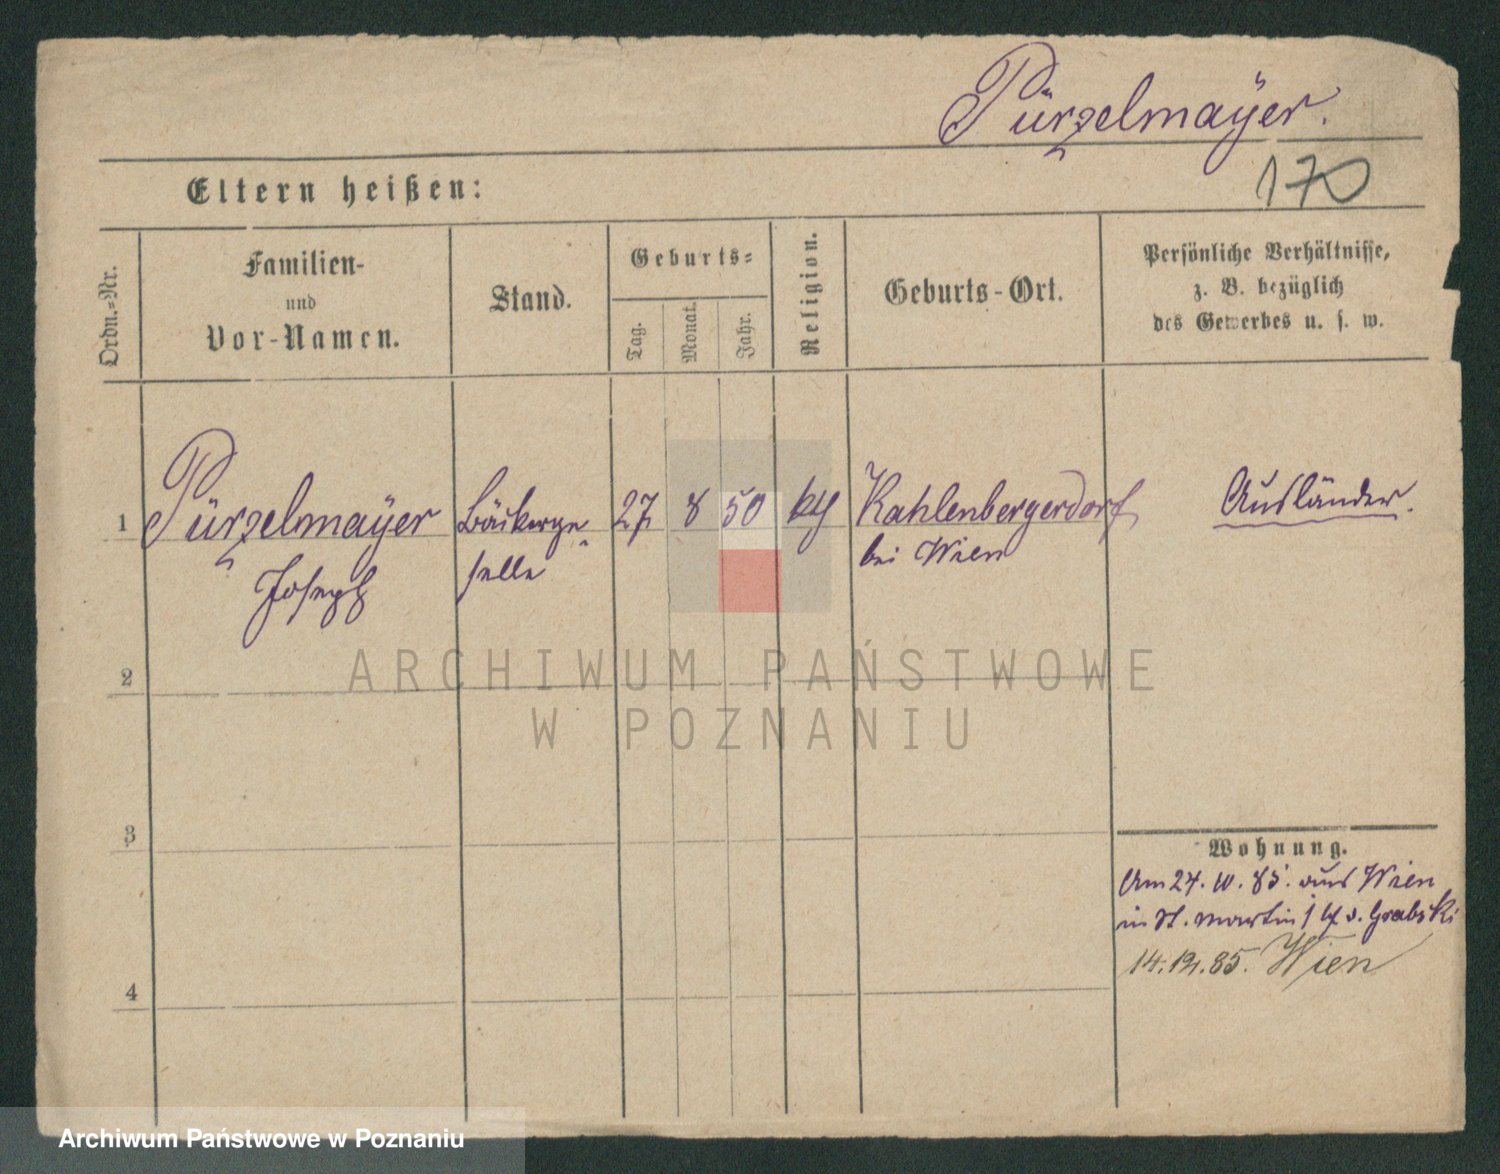 Pürzelmayer.
170
Eltern heißen:
Ordn.-Nr.
Familien-
und
Vor-Namen.
Stand.
Geburts-
Tag.
Monat.
Jahr.
Religion.
Geburts-Ort.
Persönliche Verhältnisse,
z. B. bezüglich
des Gewerbes u. s. w.
1
Pürzelmayer
Joseph
Bäckerge-
selle
27
8
50
Kahlenbergerdorf
bei Wien
Ausländer.
2
ARCHIWUM PAŃSTWOWE
W POZNANIU
3
4
Wohnung.
Am 24. 10. 85. aus Wien
in St. Martin 1 v. Grabski
14.12.85. Wien
Archiwum Państwowe w Poznaniu